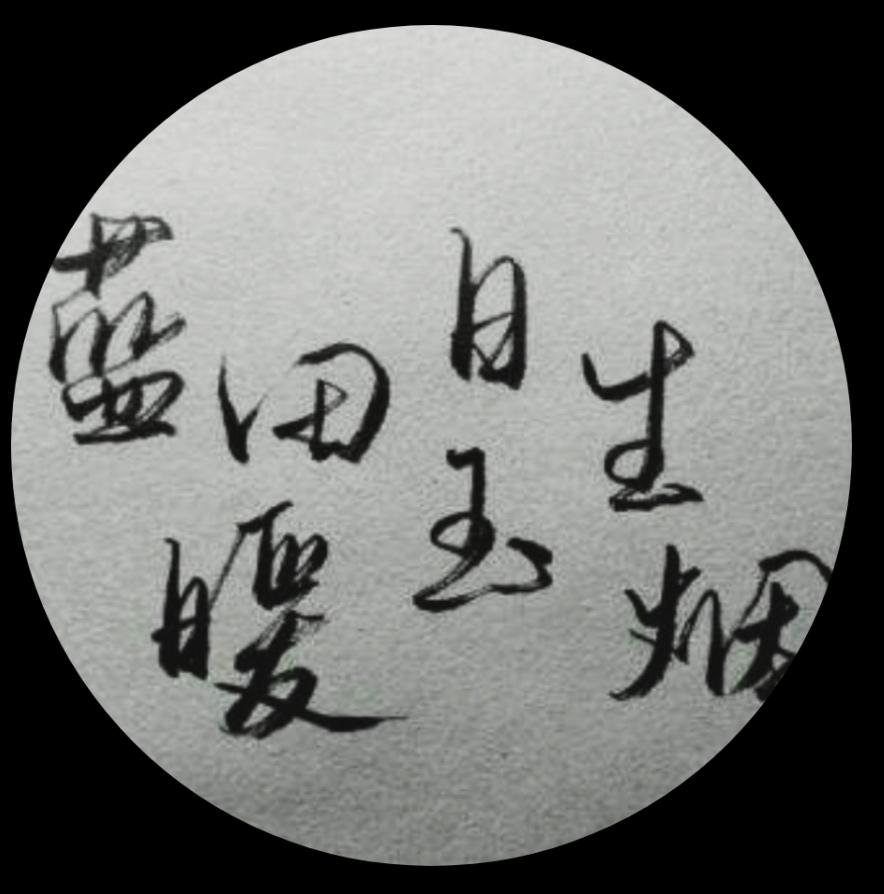 蓝田日暖玉生烟